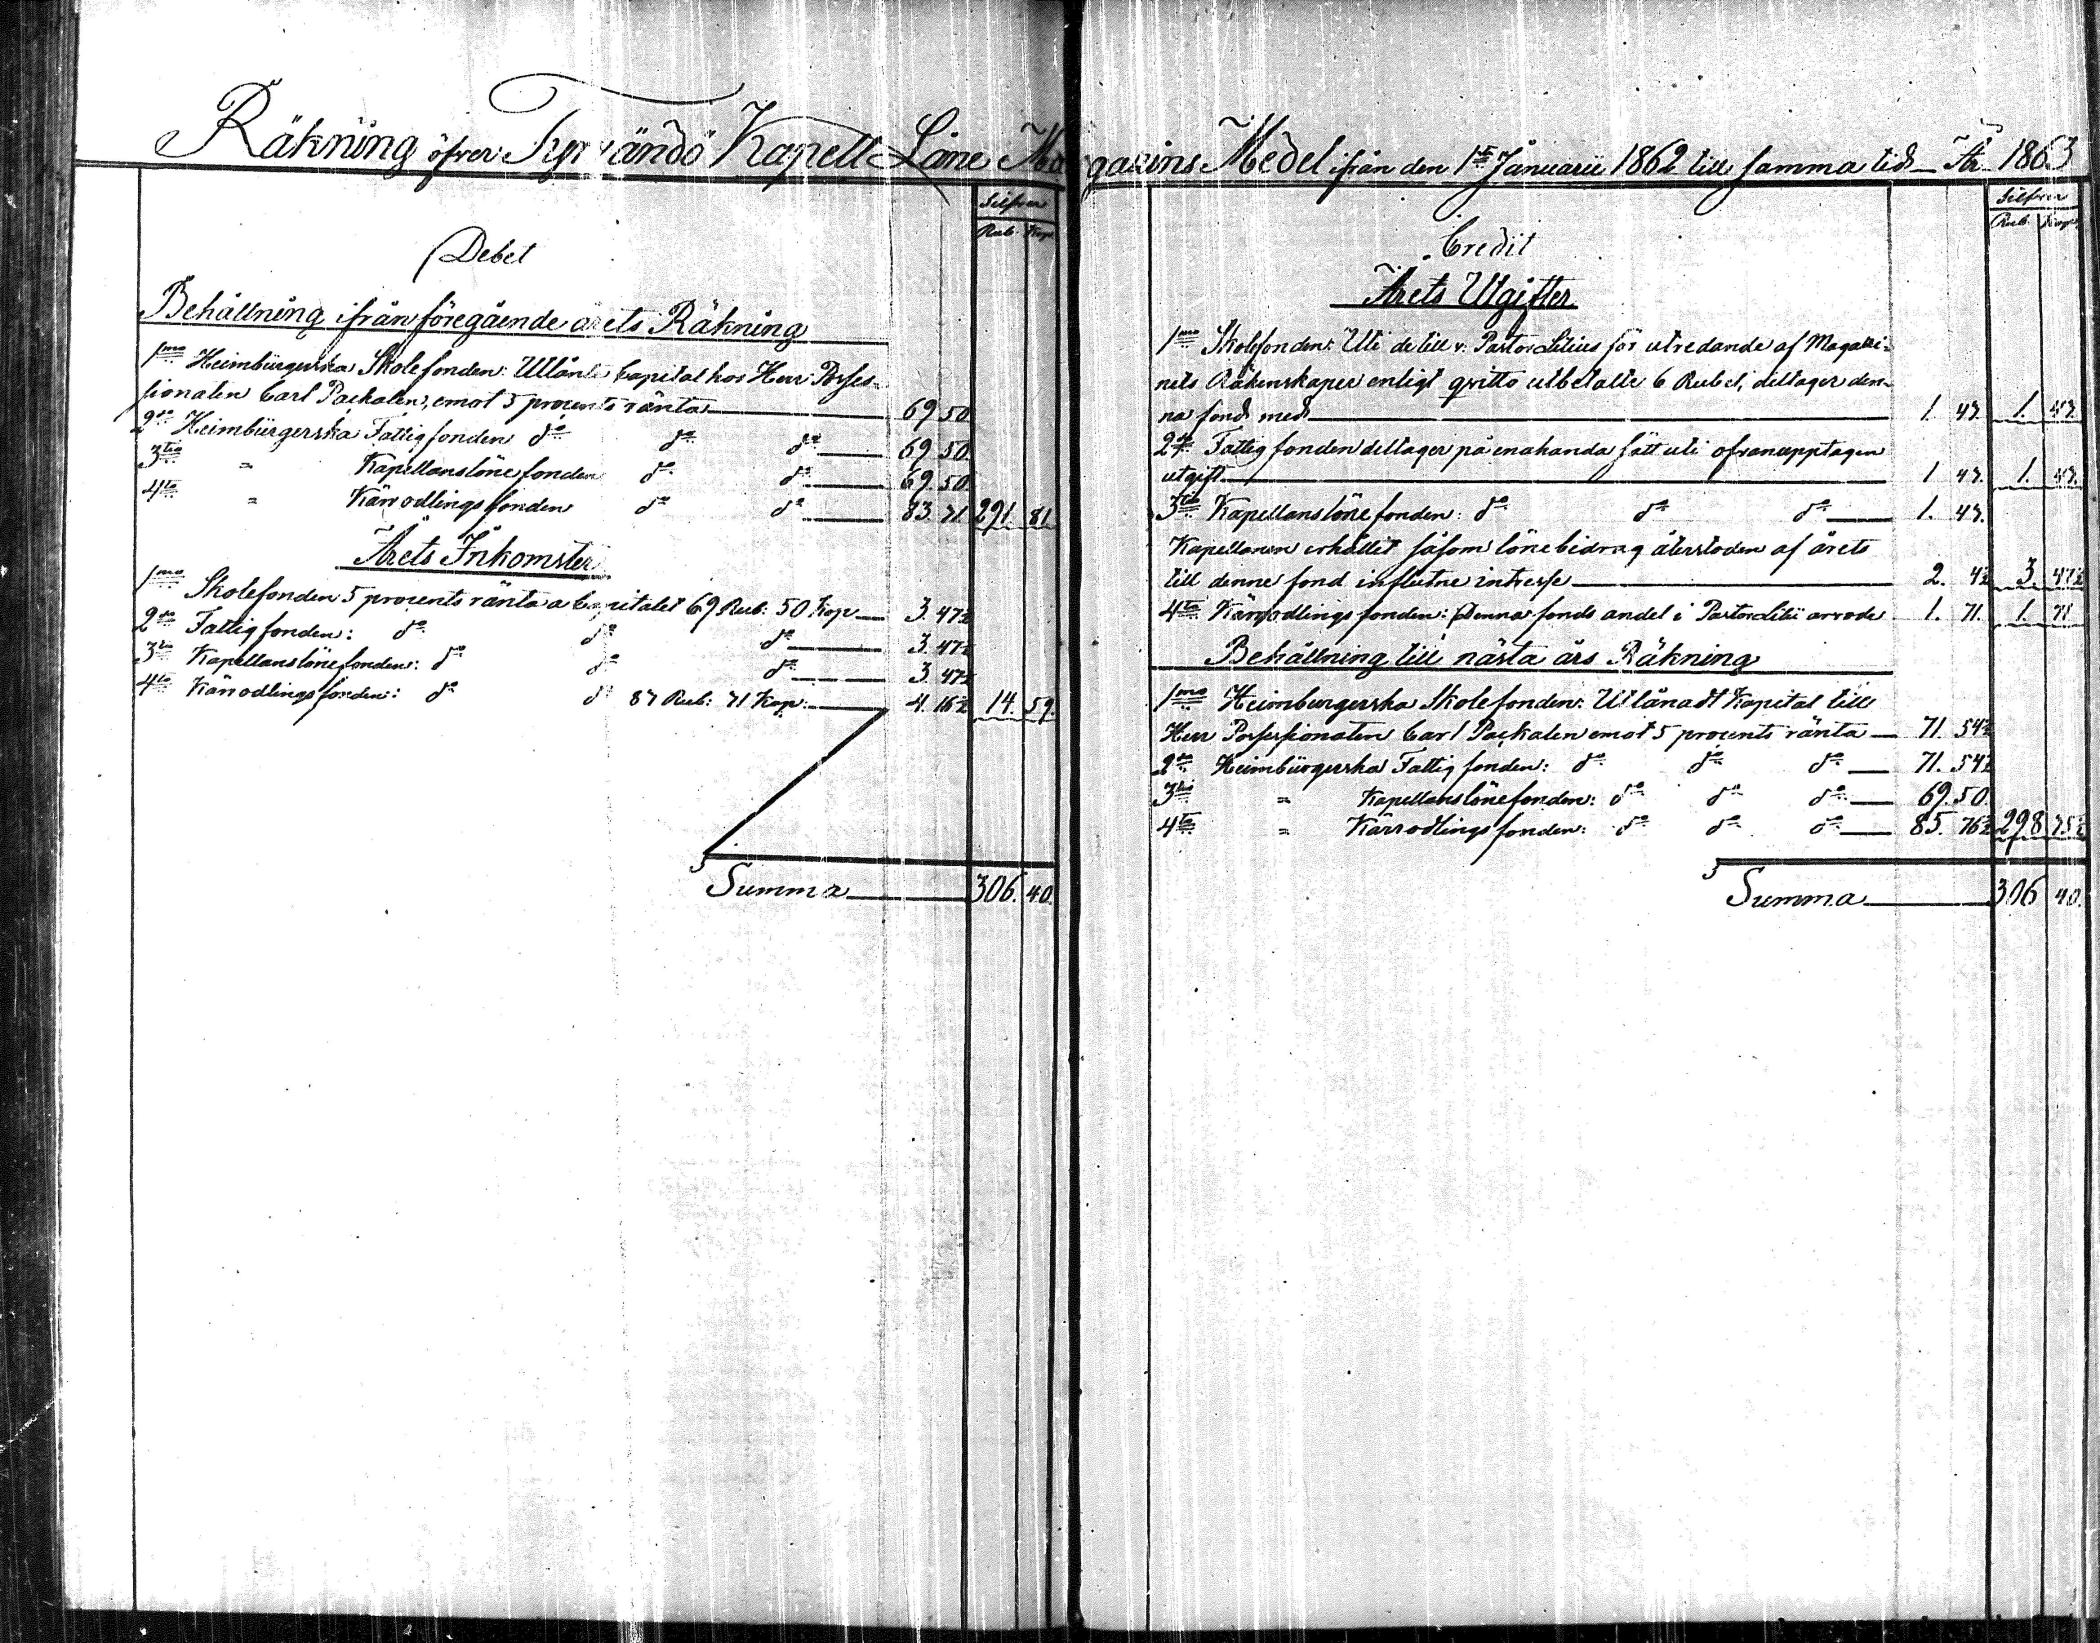 Räkning öfver Kapell Låne Magasins Medel ifrån den 1st Januarii 1862 till samma tid År 1863
Silfver
Rub. Kop.
Debet
Behållning ifrån föregående årets Räkning
1mo Heimbürgerska Skolefonden: Utlånt Capital hos Herr Posses-
sionaten Carl Packalen, emot 5 procents ränta 69 50
2do Heimbürgerska Fattigfonden do do do 69 50
3tio = Kapellanslönefonden do do 69. 50
4to = Kärrodlingsfonden do do 83. 71 291. 81
Årets Inkomster
1mo Skolefonden 5 procents ränta a Capitalet 69 Rub. 50 Kop 3. 47½
2do Fattigfonden: do do do 3. 47½
3tio Kapellanslönefonden: do do do 3. 47½
4to Kärrodlingsfonden: do do 87 Rub: 71 Kop: 4. 16½ 14. 59.
Summa 306. 40.
Silfver
Rub. Kop.
Credit
Årets Utgifter
1mo Skolefonden: Uti de till v. Pastor Lilius för utredande af Magasi-
nets Räkenskaper enligt qvitto utbetalte 6 Rubel, deltager den-
na fond med 1. 43. 1. 43.
2do Fattigfonden deltager på enahanda sätt uti ofvanupptagen
utgift 1 43. 1. 43.
3tio Kapellanslönefonden: do do do 1. 43.
Kapellanen erhållit såsom lönebidrag återstoden af årets
till denne fond influtne intresse 2. 4½ 3. 47½
4to Kärrodlingsfonden: Denna fonds andel i Pastor Lilii arvode 1. 71. 1. 71
Behållning till nästa års Räkning
1mo Heimburgerska Skolefonden: Utlånadt Kapital till
Herr Possessionaten Carl Packalen emot 5 procents ränta 71. 54½
2do Heimbürgerska Fattigfonden: do do do 71. 54½
3tio = Kapellanslönefonden: do do do 69. 50.
4to = Kärrodlingsfonden: do do do 85. 76½ 298 75½
Summa 306 40.